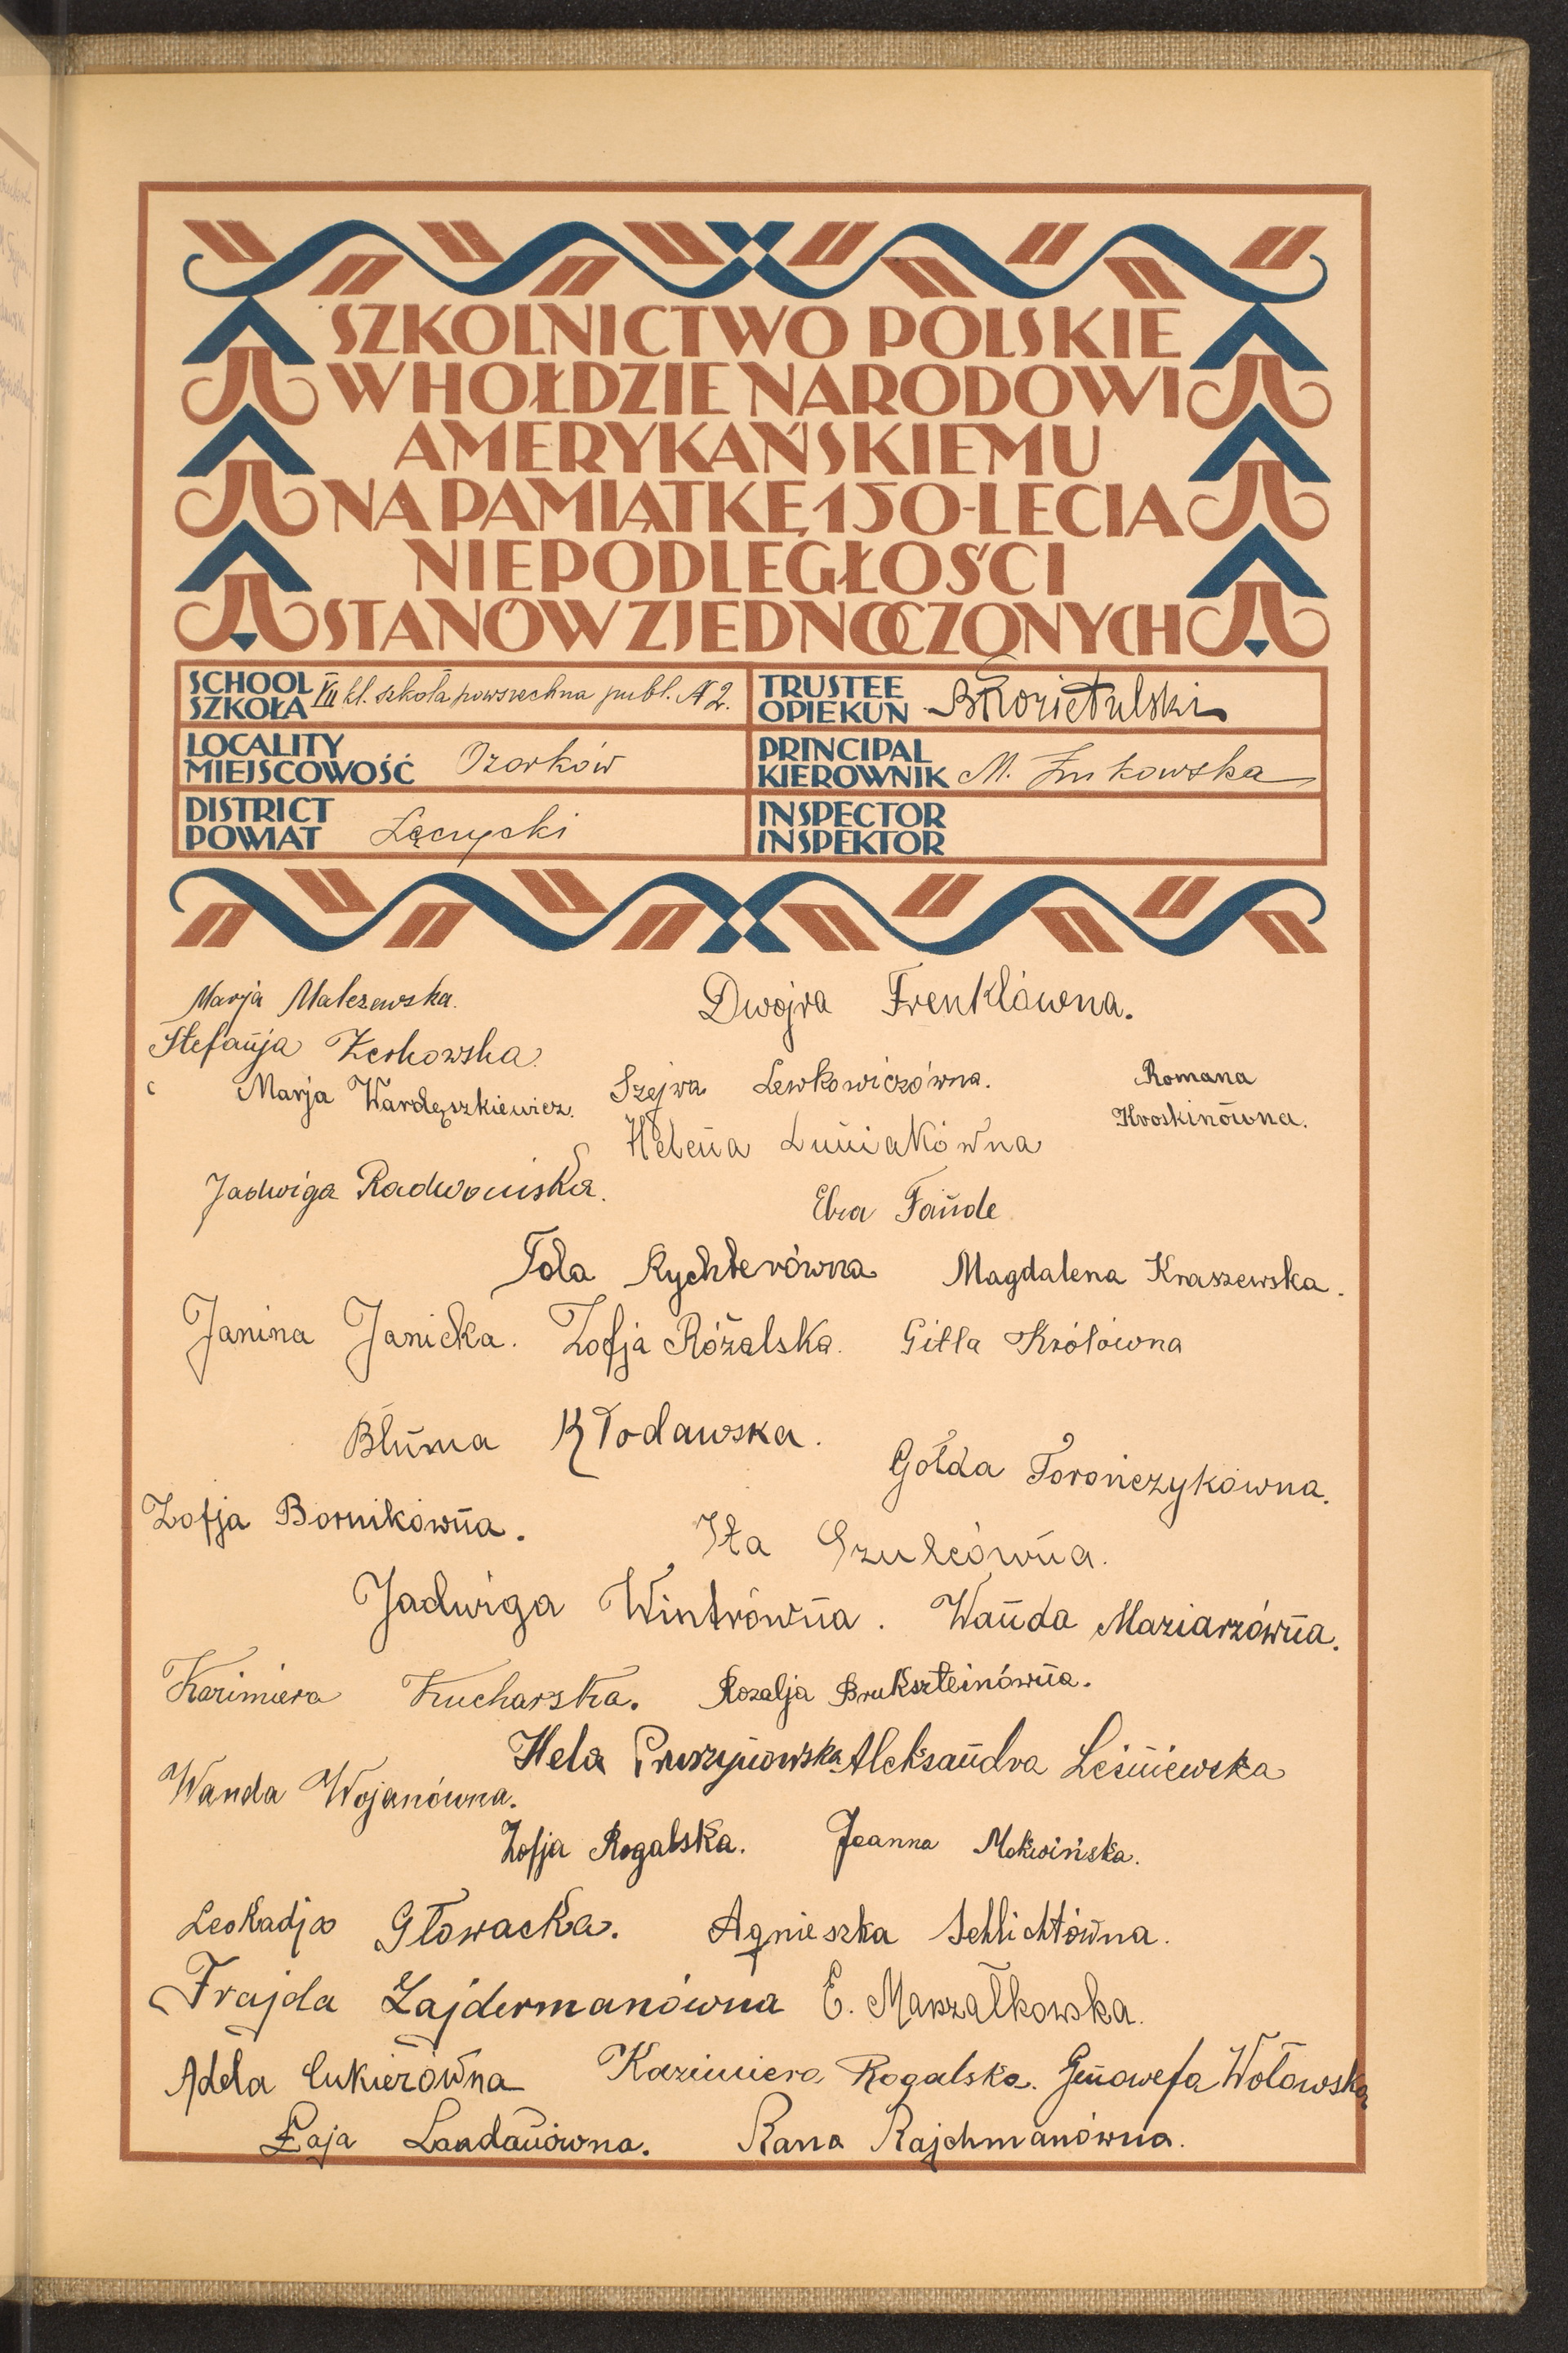 SZKOLNICTWO POLSKIE
W HOŁDZIE NARODOWI
AMERYKAŃSKIEMU
NA PAMIĄTKĘ 150-LECIA
NIEPODLEGŁOŚCI
STANÓW ZJEDNOCZONYCH
SCHOOL
SZKOŁA VII kl. szkoła powszechna publ. N 2.
TRUSTEE
OPIEKUN
LOCALITY
MIEJSCOWOŚĆ Ozorków
PRINCIPAL
KIEROWNIK M. Żukowska
DISTRICT
POWIAT Łęczycki
INSPECTOR
INSPEKTOR
Marja Malczewska.
Dwojra Frenklówna.
Stefanja
Marja Wardęszkiewicz.
Szejwa Lewkowiczówna.
Romana
Kroskinówna.
Helena Luniakówna
Jadwiga Radwońiska.
Ewa Fande
Tola Rychterówna
Magdalena Kraszewska.
Janina Janicka.
Zofja Różalska.
Gitla Królówna
Bluma Kłodawska.
Gołda Torończykówna.
Zofja Bornikówna.
Ita Szulcówna.
Jadwiga Wintrówna.
Wanda Maziarzówna.
Kazimiera Kucharska.
Rozalja Brukszteinówna.
Hela Pruszynowska
Aleksandra Leśniewska
Wanda Wojanówna.
Zofja Rogalska.
Joanna Mokwińska.
Leokadja Głowacka.
Agnieszka Schlichtówna.
Frajda Zajdermanówna
E. Marszałkowska.
Adela Cukierówna
Kazimiera Rogalska.
Genowefa Wołowska
Łaja Landauówna.
Rana Rajchmanówna.